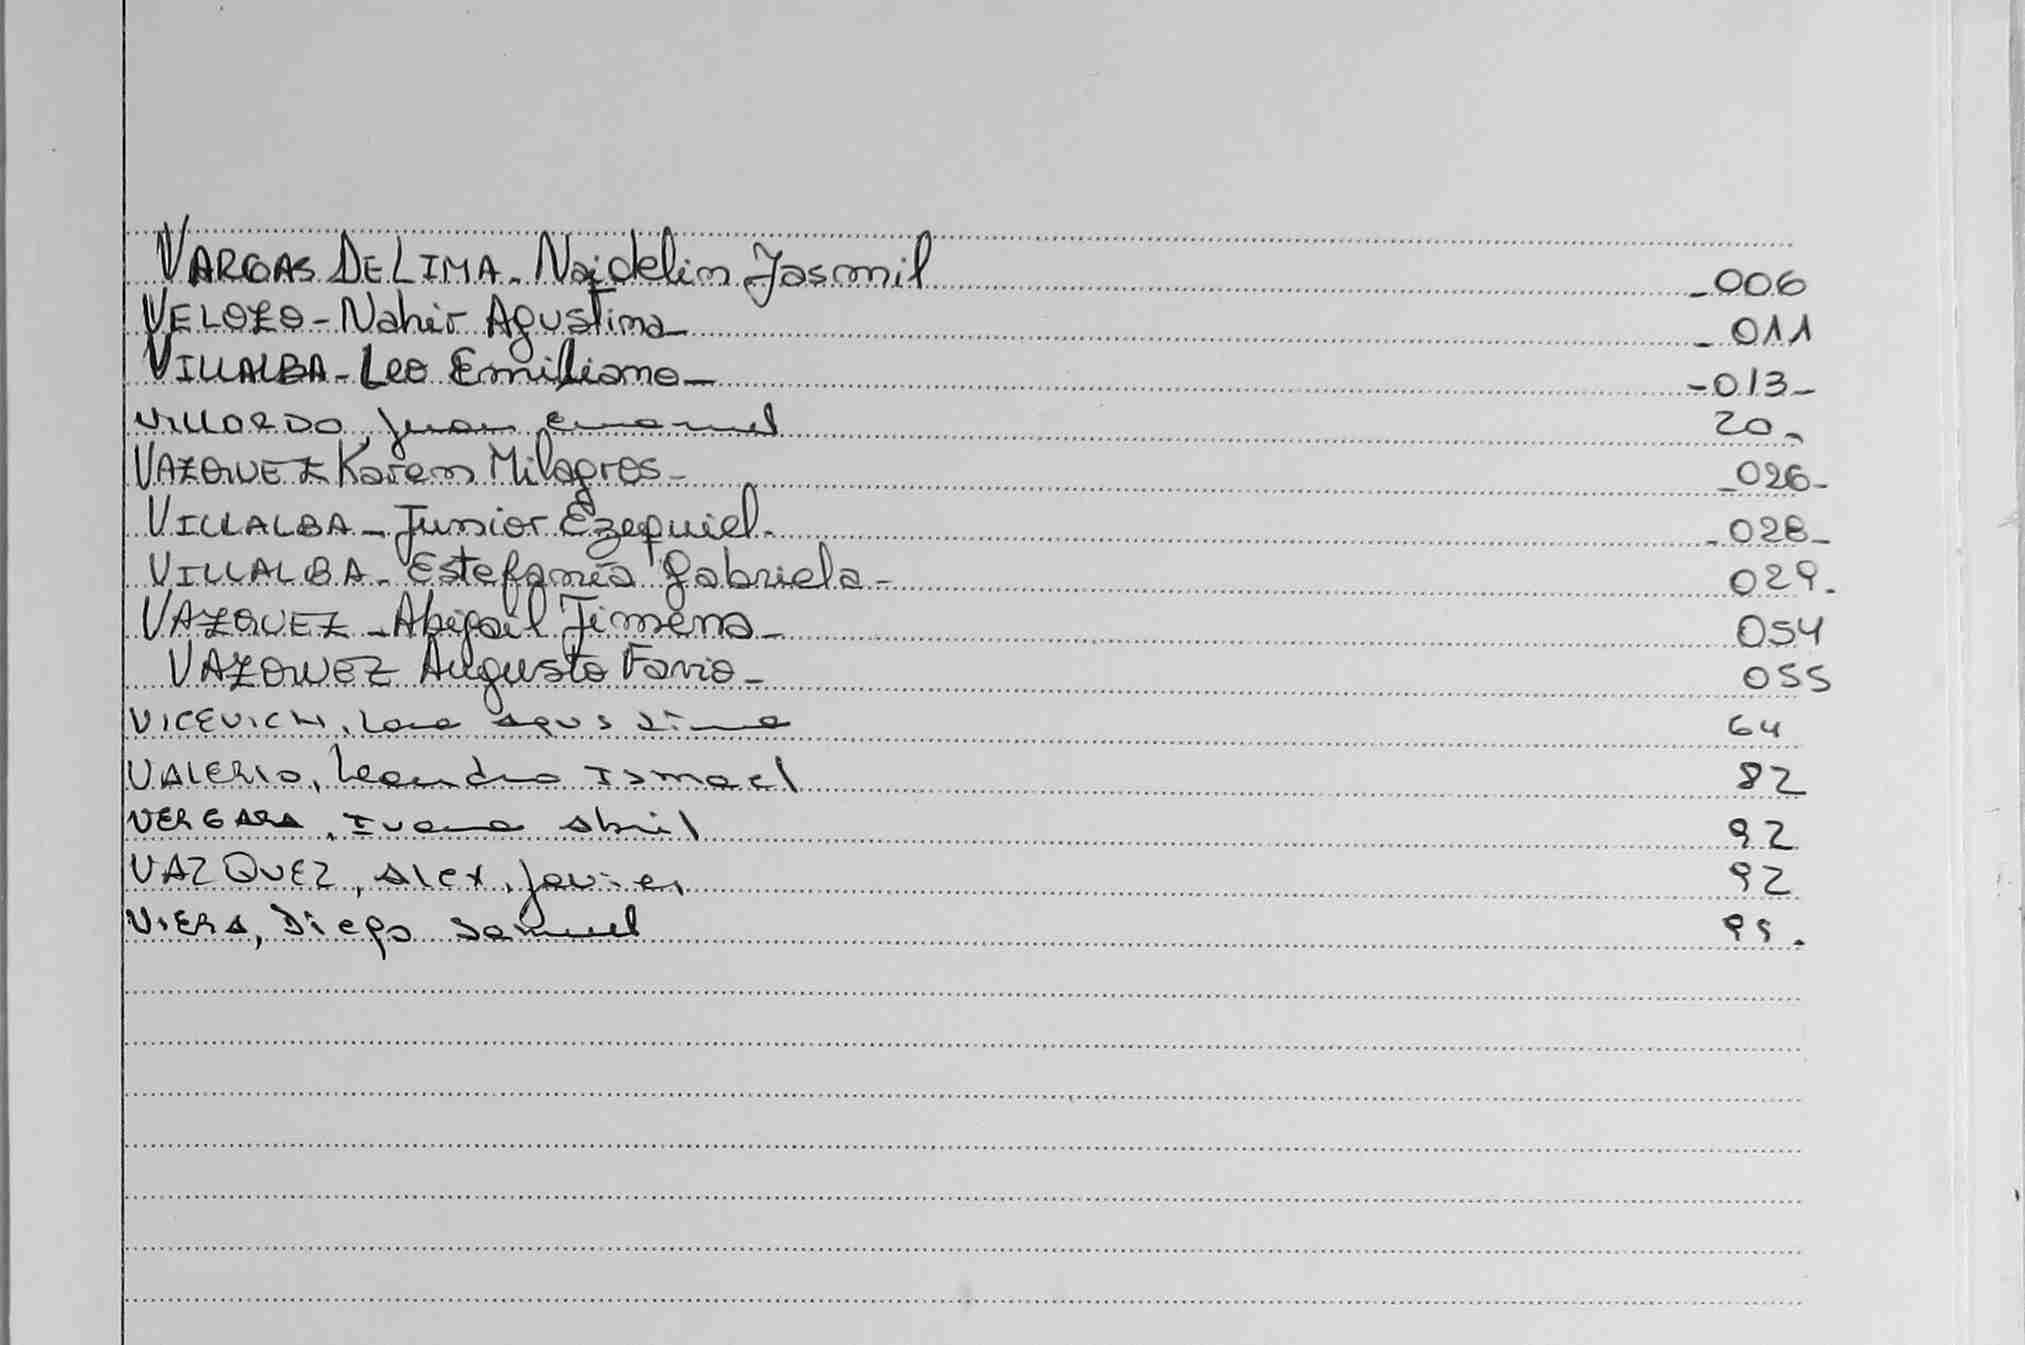 VARGAS DE LIMA - Naidelin Jasmil - 006
VELOZO - Nahir Agustina - 011
VILLALBA - Leo Emiliano - 013 -
VILLORDO, Juan Emanuel 20 -
VAZQUEZ Karen Milagros - 026 -
VILLALBA - Junior Ezequiel - 028 -
VILLALBA - Estefanía Gabriela - 029.
VAZQUEZ - Abigail Jimena - 054
VAZQUEZ Augusto Favio - 055
VICEVICH, Lara Agustina 64
VALERIO, Leandro Ismael 82
VERGARA, Ivana Abril 92
VAZQUEZ, Alex Javier 92
VIERA, Diego Samuel 95.